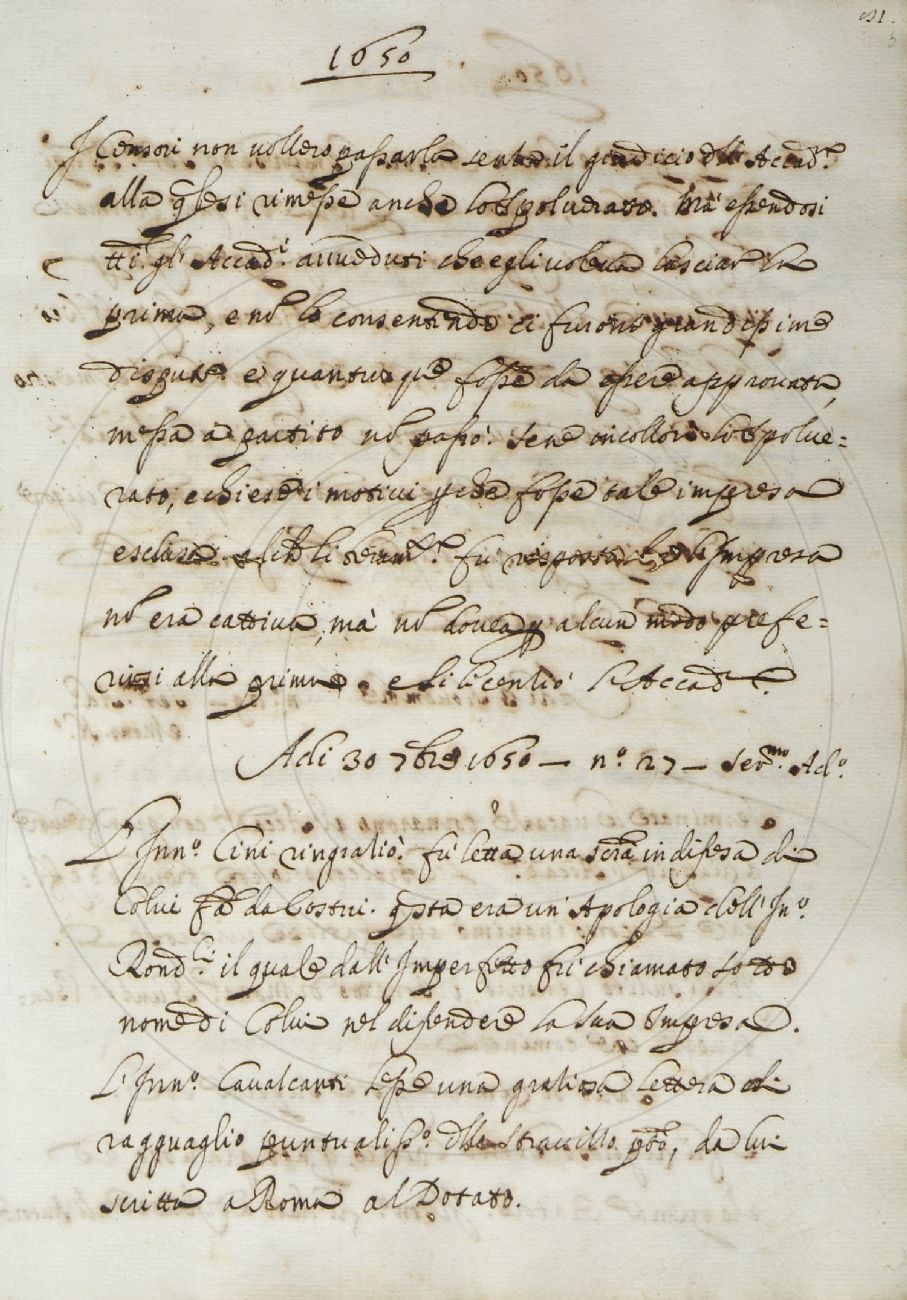 91.
1650
I Censori non vollero passarla senza il giudicio dell' Accad.ᵃ
alla q̃le si rimesse anche lo Spolverato. Mà essendosi
tt̃i gl' Accad.ⁱ avveduti che egli voleva lasciar la
prima, e nõ lo consentendo ci furono grandissime
dispute e quantunque fosse da essere approvata,
messa a partito nõ passò. Se ne incollorì lo Spolve=
rato, e chiese i motivi p̱che fosse tale impresa
esclusa fu risposto l'Impresa
nõ era cattiva, mà nõ dovea p̱ alcun modo prefe=
rirsi alla prima. e si licentiò l'Accad.ᵃ
Adi 30 7bre 1650 — n.º 27 — Ser.ᵐᵒ Ad.º
L'Inn.º Cini ringratiò. fù letta una scrã in difesa di
Colui fat̃ da Costui. q̃sta era un' Apologia dell' In.º
Rond.ˡⁱ il quale dall' Imperfetto fù chiamato sotto
nome di Colui nel difendere la sua Impresa.
L' Inn.º Cavalcanti lesse una gratiosa lettera di
ragguaglio puntualiss.º dello Stravizzo p̱to, da lui
scritta a Roma al Dotato.